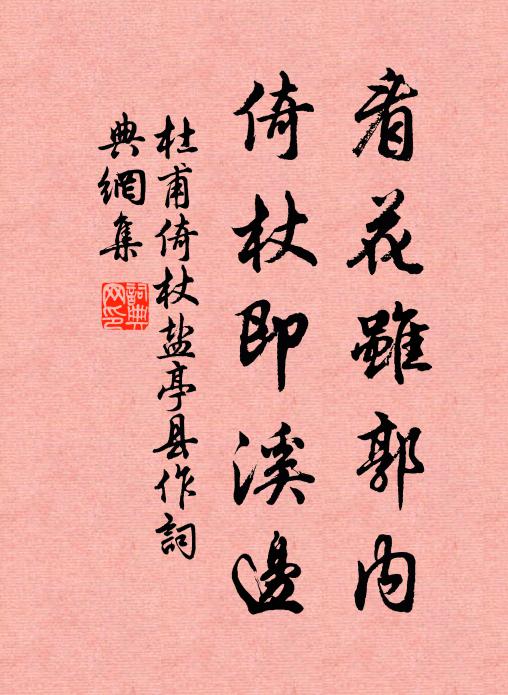 看花雖郭內
倚杖即溪邊
杜甫倚杖盐亭县作詞
典網集
詞典網印